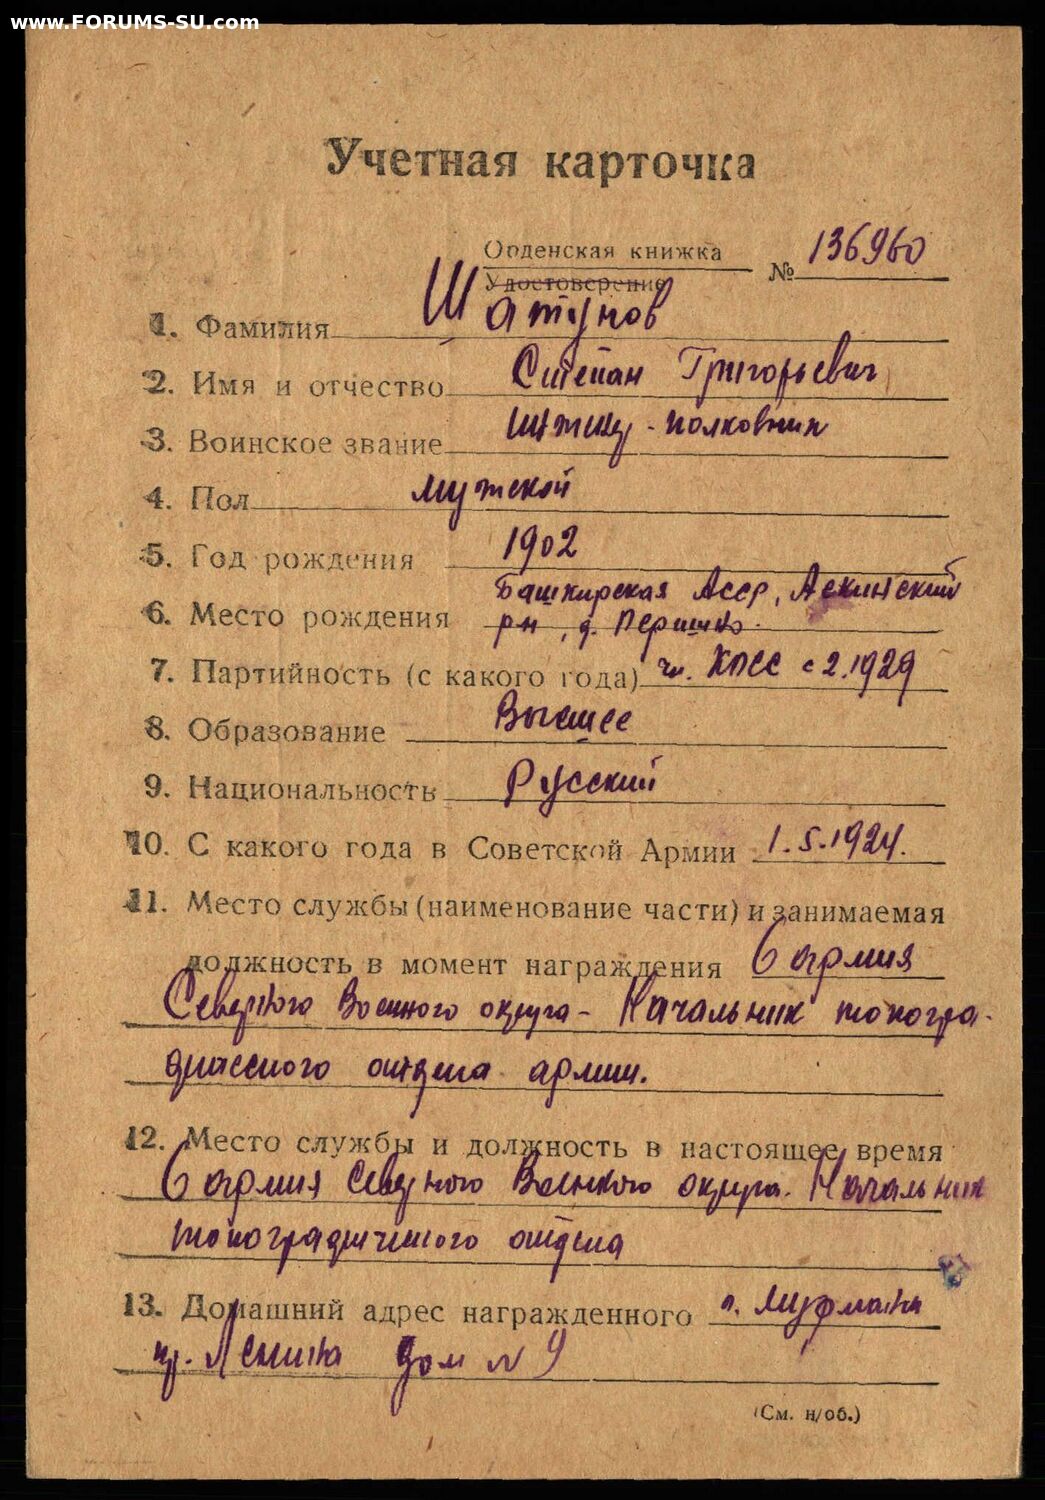 www.FORUMS-SU.com
Учетная карточка
Орденская книжка
Удостоверение
№ 136960
1. Фамилия Шатунов
2. Имя и отчество Степан Григорьевич
3. Воинское звание Инжинер-полковник
4. Пол мужской
5. Год рождения 1902
6. Место рождения Башкирская Асср, Аскинский
рн, д.
7. Партийность (с какого года) чл. КПСС с 2.1929
8. Образование Высшее
9. Национальность Русский
10. С какого года в Советской Армии 1.5.1924.
11. Место службы (наименование части) и занимаемая
должность в момент награждения 6 армия
Северного Военного округа - Начальник топогра-
отдела армии.
12. Место службы и должность в настоящее время
6 армия Северного Военного округа. Начальник
топографического отдела
13. Домашний адрес награжденного г. Мурманск
пр. Ленина дом N 9
(См. н/об.)